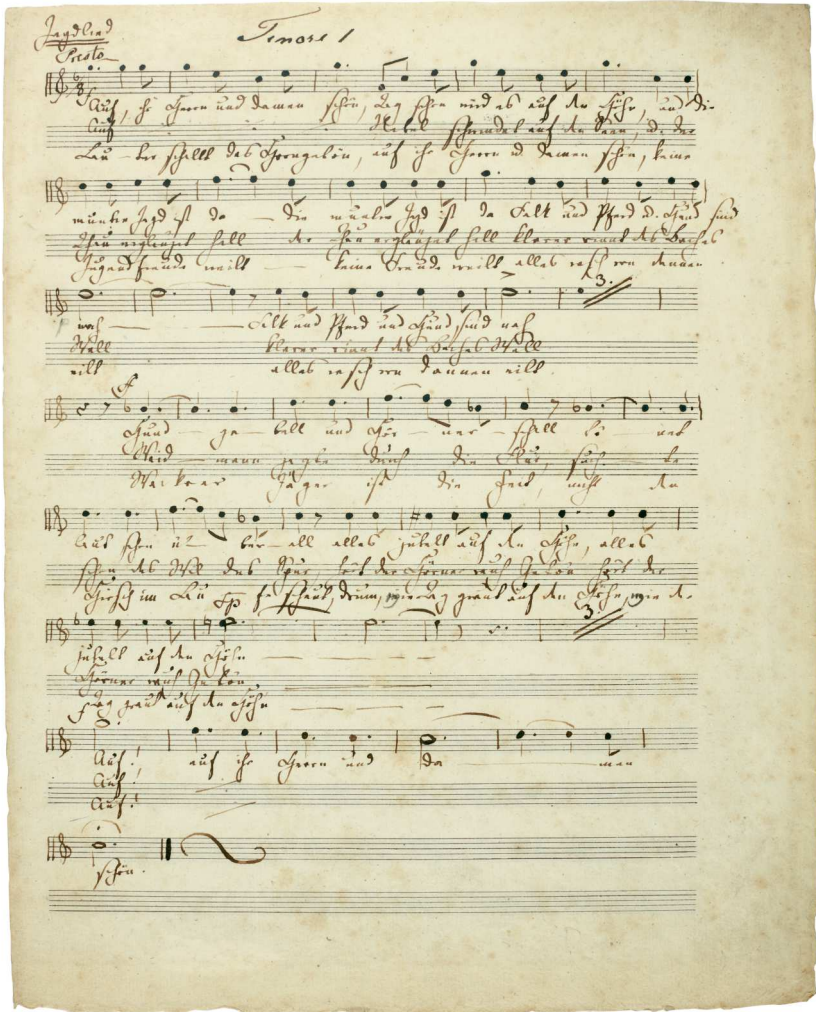 Jagdlied
Tenore 1
Presto
Auf, ihr Herrn und Damen schön, Tag schon wird es auf den Höhn, und die
Auf Nebel schwindet auf den Seen, u. der
Lau - ter schallt das Horngetön, auf ihr Herrn u. Damen schön, keine
muntre Jagd ist da — die muntre Jagd ist da Falk und Pferd u. Hund sind
Thau erglänzet hell der Thau erglänzet hell klarer rinnt des Baches
Jugendfreude weilt — keine Freude weilt alles rasch von dannen
nah — Falk und Pferd und Hund sind nah
3.
Wall klarer rinnt des Baches Wall
eilt alles rasch von dannen eilt.
f
Hund - ge - bell und Hör - ner - schall tö - net
Weid - mann durch die Flur, such - te
Wackrer Jäger ist die Zeit, nicht den
laut schon ü - ber - all alles jubelt auf den Höhn, alles
schon des Wild des Spur, hört der Hörner Getön hört der
Hirsch im Lau f scheut, drum, wie Tag graut auf den Höhn, wie der
fp
3.
jubelt auf den Höhn
Hörner Getön
Tag graut auf den Höhn
Auf! auf ihr Herrn und Da — men
Auf!
Auf!
schön.